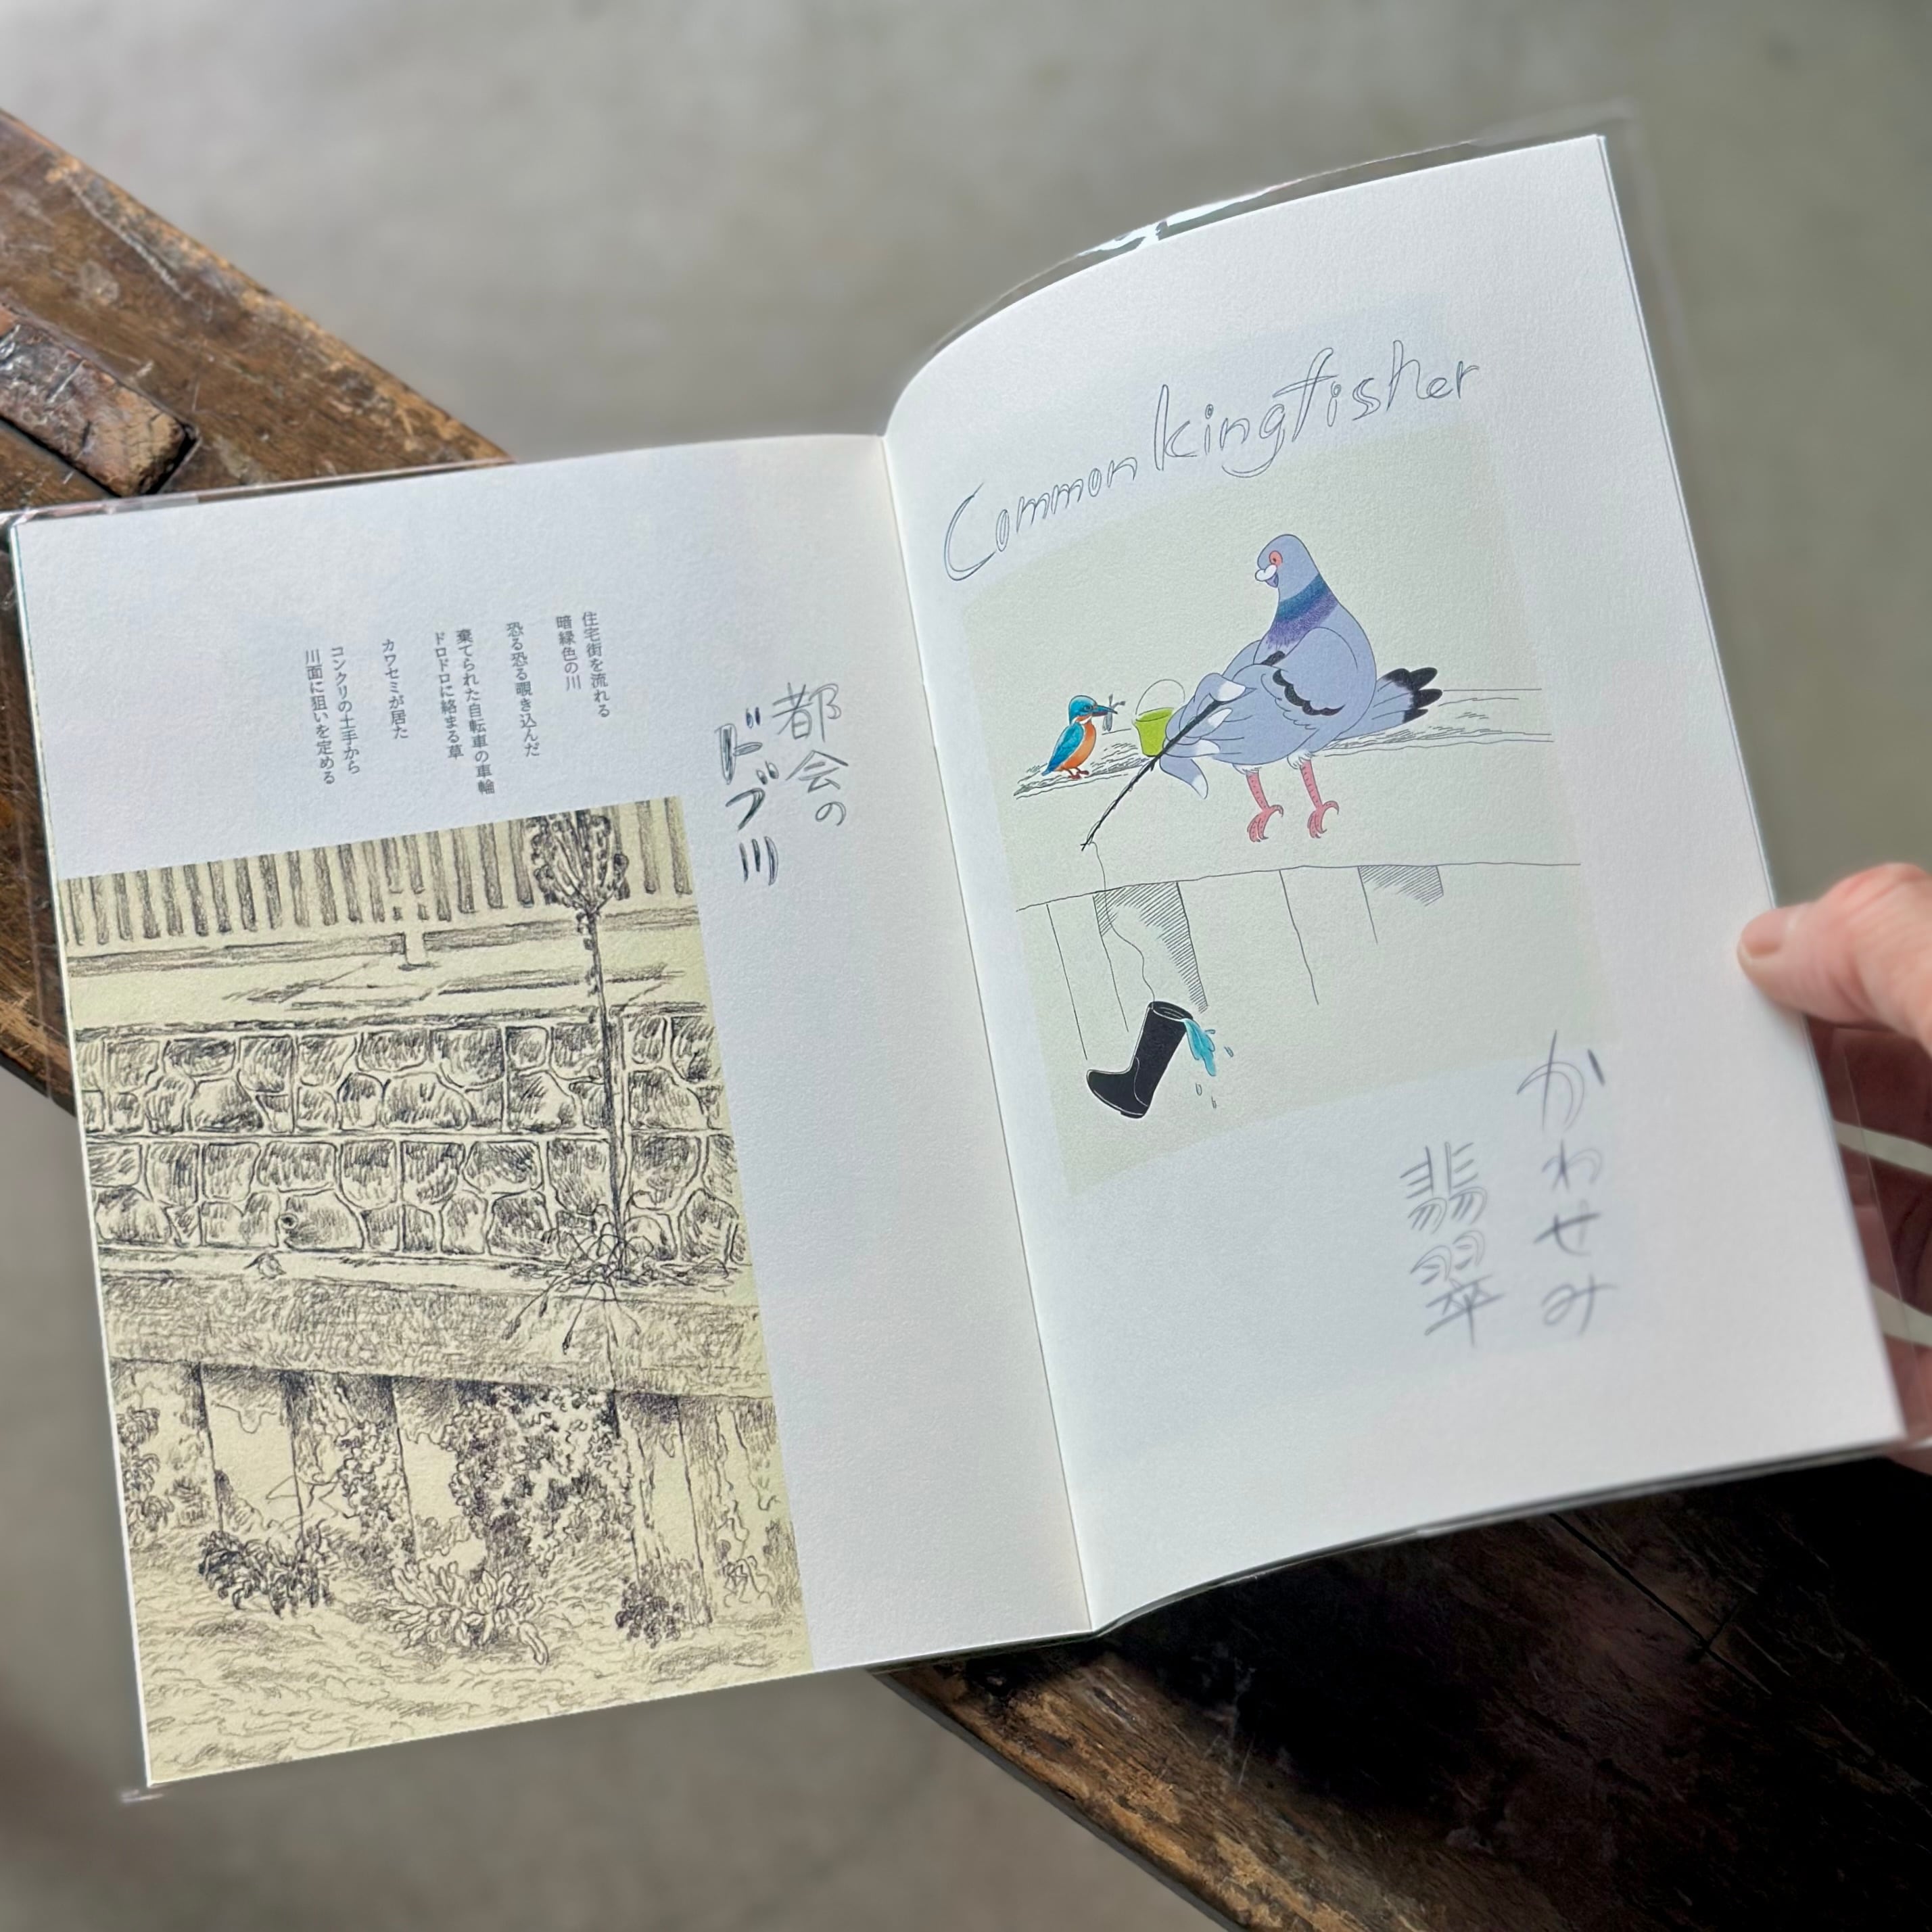 都会の
ドブ川
住宅街を流れる
暗緑色の川
恐る恐る覗き込んだ
棄てられた自転車の車輪
ドロドロに絡まる草
カワセミが居た
コンクリの土手から
川面に狙いを定める
Common kingfisher
かわせみ
翡翠